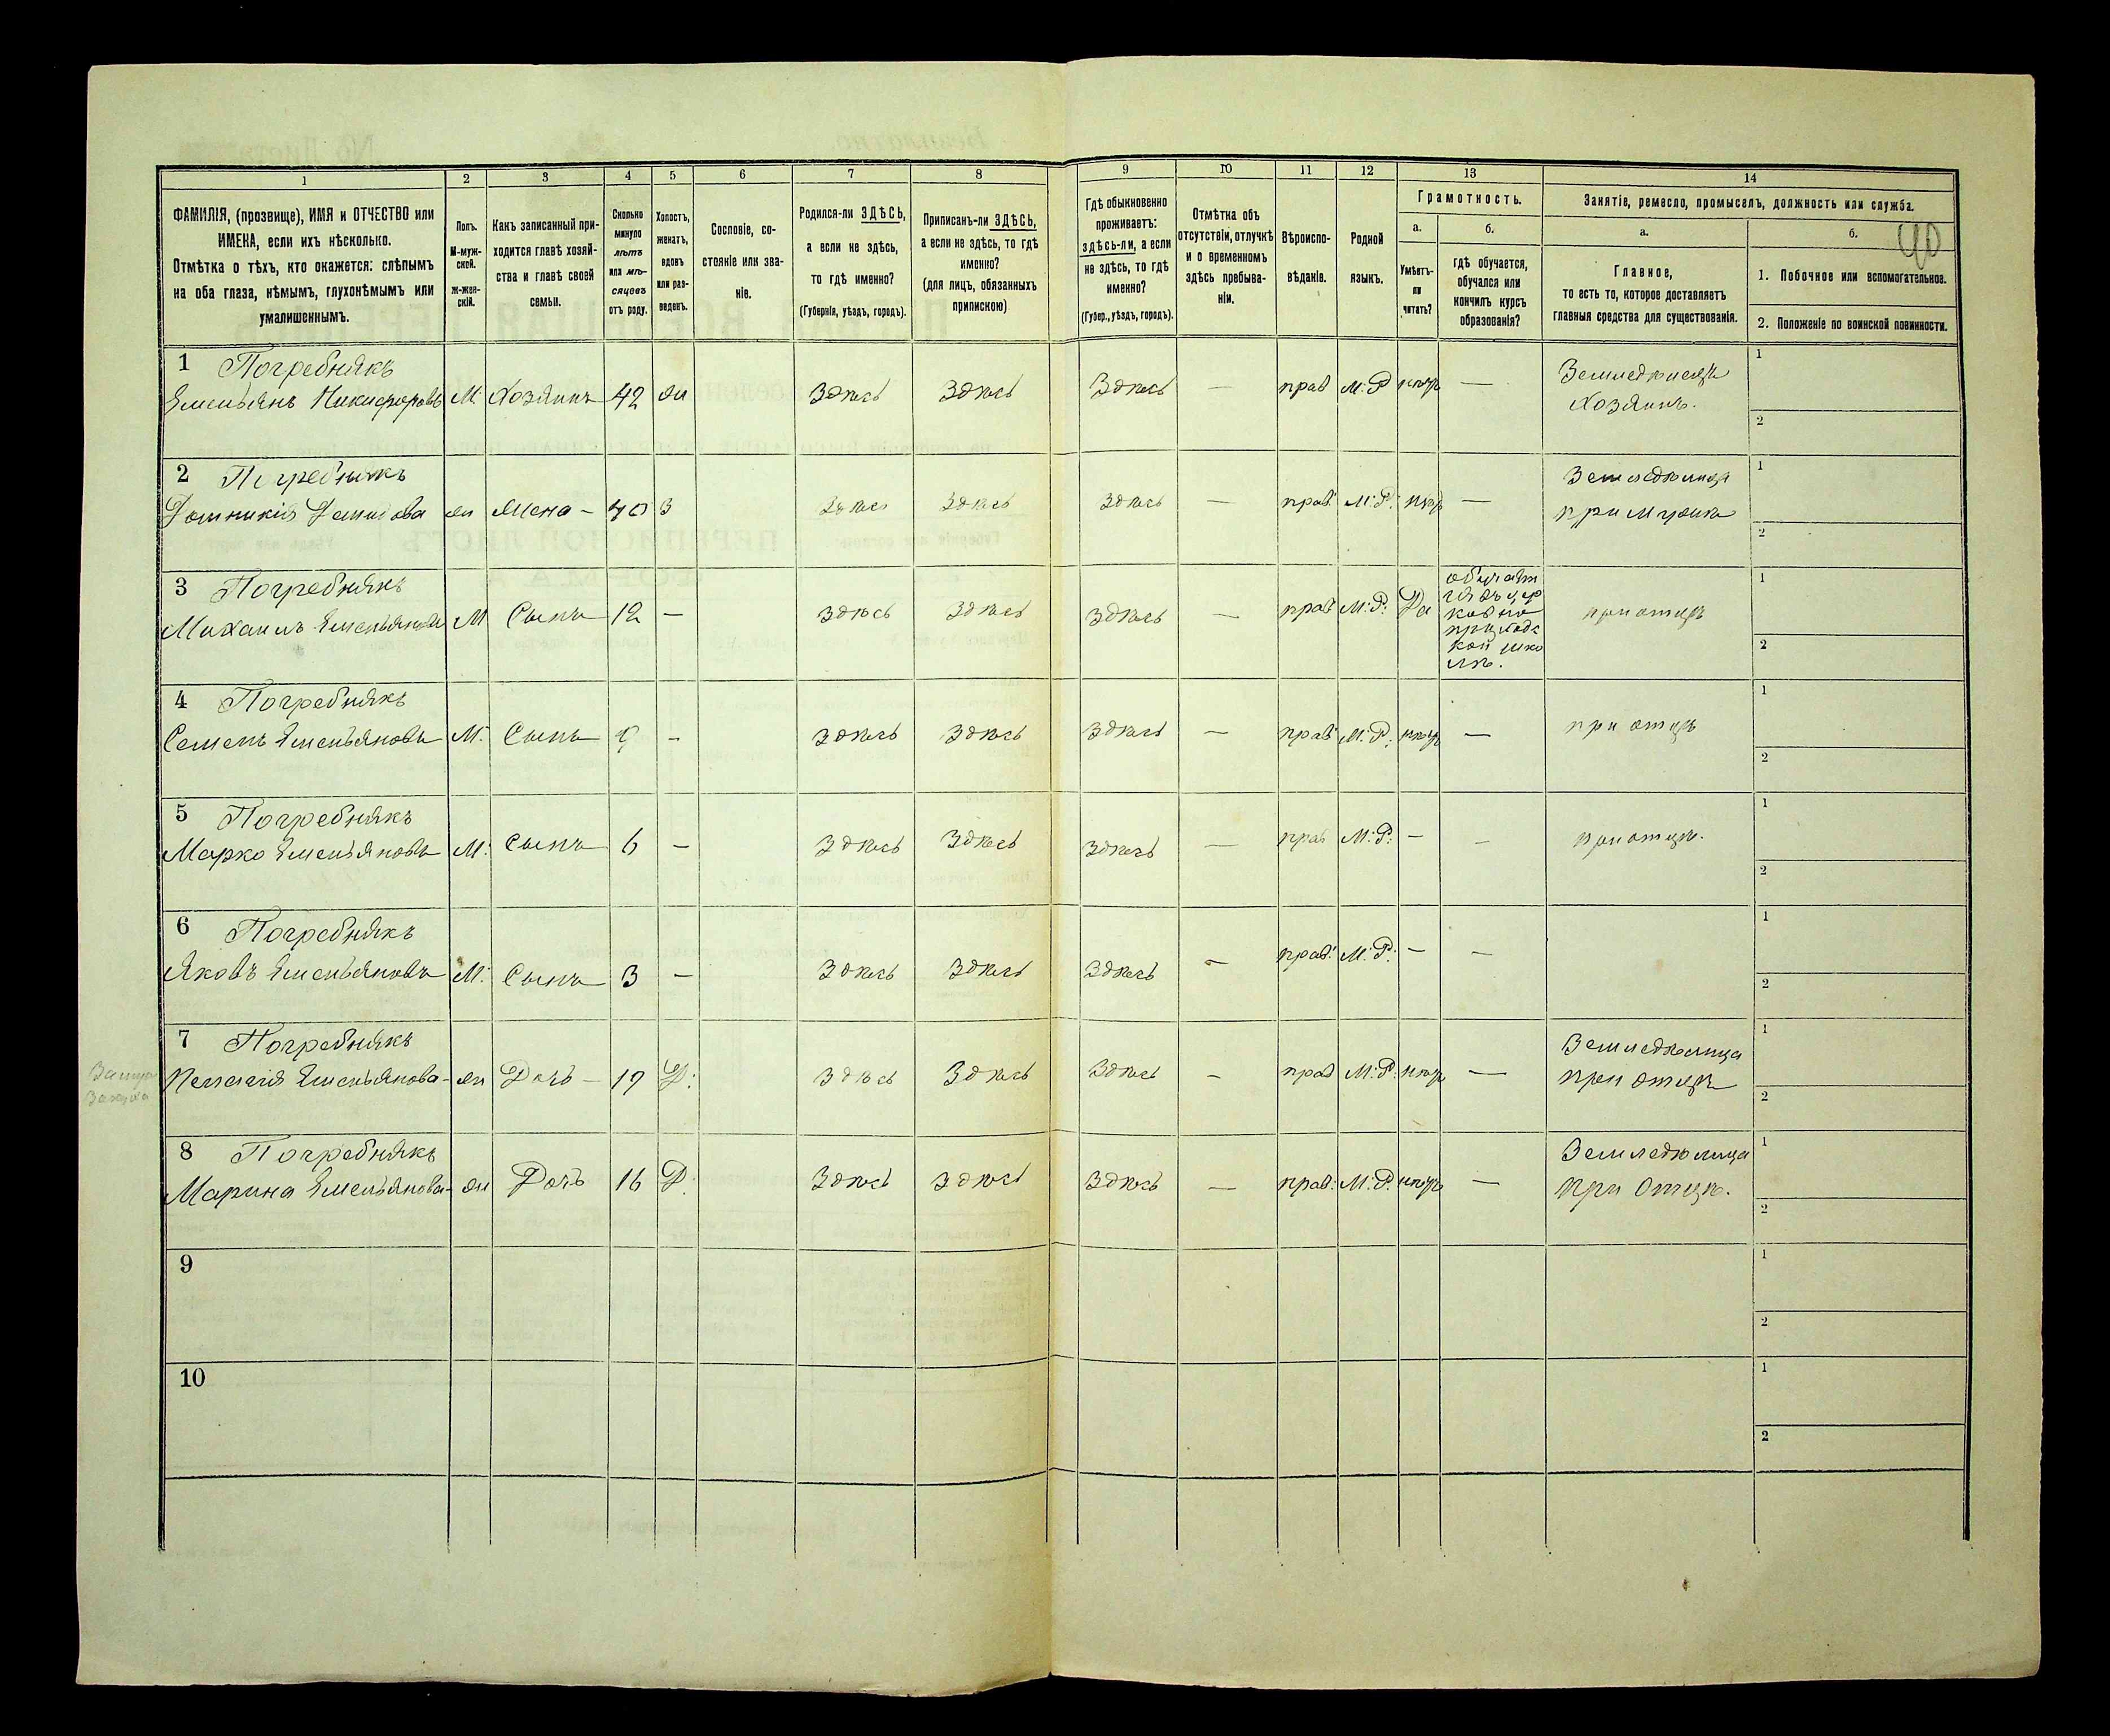 1 2 3 4 5 6 7 8 9 10 11 12 13 14
ФАМИЛІЯ, (прозвище), ИМЯ и ОТЧЕСТВО или
ИМЕНА, если ихъ нѣсколько.
Отмѣтка о тѣхъ, кто окажется: слѣпымъ
на оба глаза, нѣмымъ, глухонѣмымъ или
умалишеннымъ.
Полъ.
М-муж-
ской.
ж-жен-
скій.
Какъ записанный при-
ходится главѣ хозяй-
ства и главѣ своей
семьи.
Сколько
минуло
лѣтъ
или мѣ-
сяцовъ
отъ роду.
Холостъ,
женатъ,
вдовъ
или раз-
веденъ.
Сословіе, со-
стояніе или зва-
ніе.
Родился-ли ЗДѢСЬ,
а если не здѣсь,
то гдѣ именно?
(Губернія, уѣздъ, городъ).
Приписанъ-ли ЗДѢСЬ,
а если не здѣсь, то гдѣ
именно?
(для лицъ, обязанныхъ
припискою)
Гдѣ обыкновенно
проживаетъ:
здѣсь-ли, а если
не здѣсь, то гдѣ
именно?
(Губер., уѣздъ, городъ).
Отмѣтка объ
отсутствіи, отлучкѣ
и о временномъ
здѣсь пребыва-
ніи.
Вѣроиспо-
вѣданіе.
Родной
языкъ.
Грамотность.
а.
Умѣетъ-
ли
читать?
б.
гдѣ обучается,
обучался или
кончилъ курсъ
образованія?
Занятіе, ремесло, промыселъ, должность или служба.
а.
Главное,
то есть то, которое доставляетъ
главныя средства для существованія.
б.
1. Побочное или вспомогательное.
2. Положеніе по воинской повинности.
1 Погребнякъ
Емельянъ Никифоровъ М. Хозяинъ 42 жн Здѣсь Здѣсь Здѣсь — прав М.Р. нѣтъ — Земледѣлецъ
Хозяинъ.
1
2
2 Погребнякъ
жн Жена — 40 З Здѣсь Здѣсь Здѣсь — прав. М.Р. нѣтъ — Земледѣлица
при мужѣ
1
2
3 Погребнякъ
Михаилъ Емельяновъ М Сынъ 12 — Здѣсь Здѣсь Здѣсь — прав М.Р. Да обучает
ся въ цер
ковно
приход с
кой шко
лѣ.
при отцѣ
1
2
4 Погребнякъ
Семенъ Емельяновъ М. Сынъ 9 — Здѣсь Здѣсь Здѣсь — прав. М.Р. нѣтъ — при отцѣ
1
2
5 Погребнякъ
Марко Емельяновъ М. Сынъ 6 — Здѣсь Здѣсь Здѣсь — прав М.Р. — — при отцѣ.
1
2
6 Погребнякъ
Яковъ Емельяновъ М. Сынъ 3 — Здѣсь Здѣсь Здѣсь — прав. М.Р. — —
1
2
7 Погребнякъ
Пелагія Емельянова жн Дочь — 19 Д. Здѣсь Здѣсь Здѣсь — прав М.Р. нѣтъ — Земледѣлица
при отцѣ
1
2
8 Погребнякъ
Марина Емельянова жн Дочь 16 Д. Здѣсь Здѣсь Здѣсь — прав. М.Р. нѣтъ — Земледѣлица
при отцѣ.
1
2
9
1
2
10
1
2